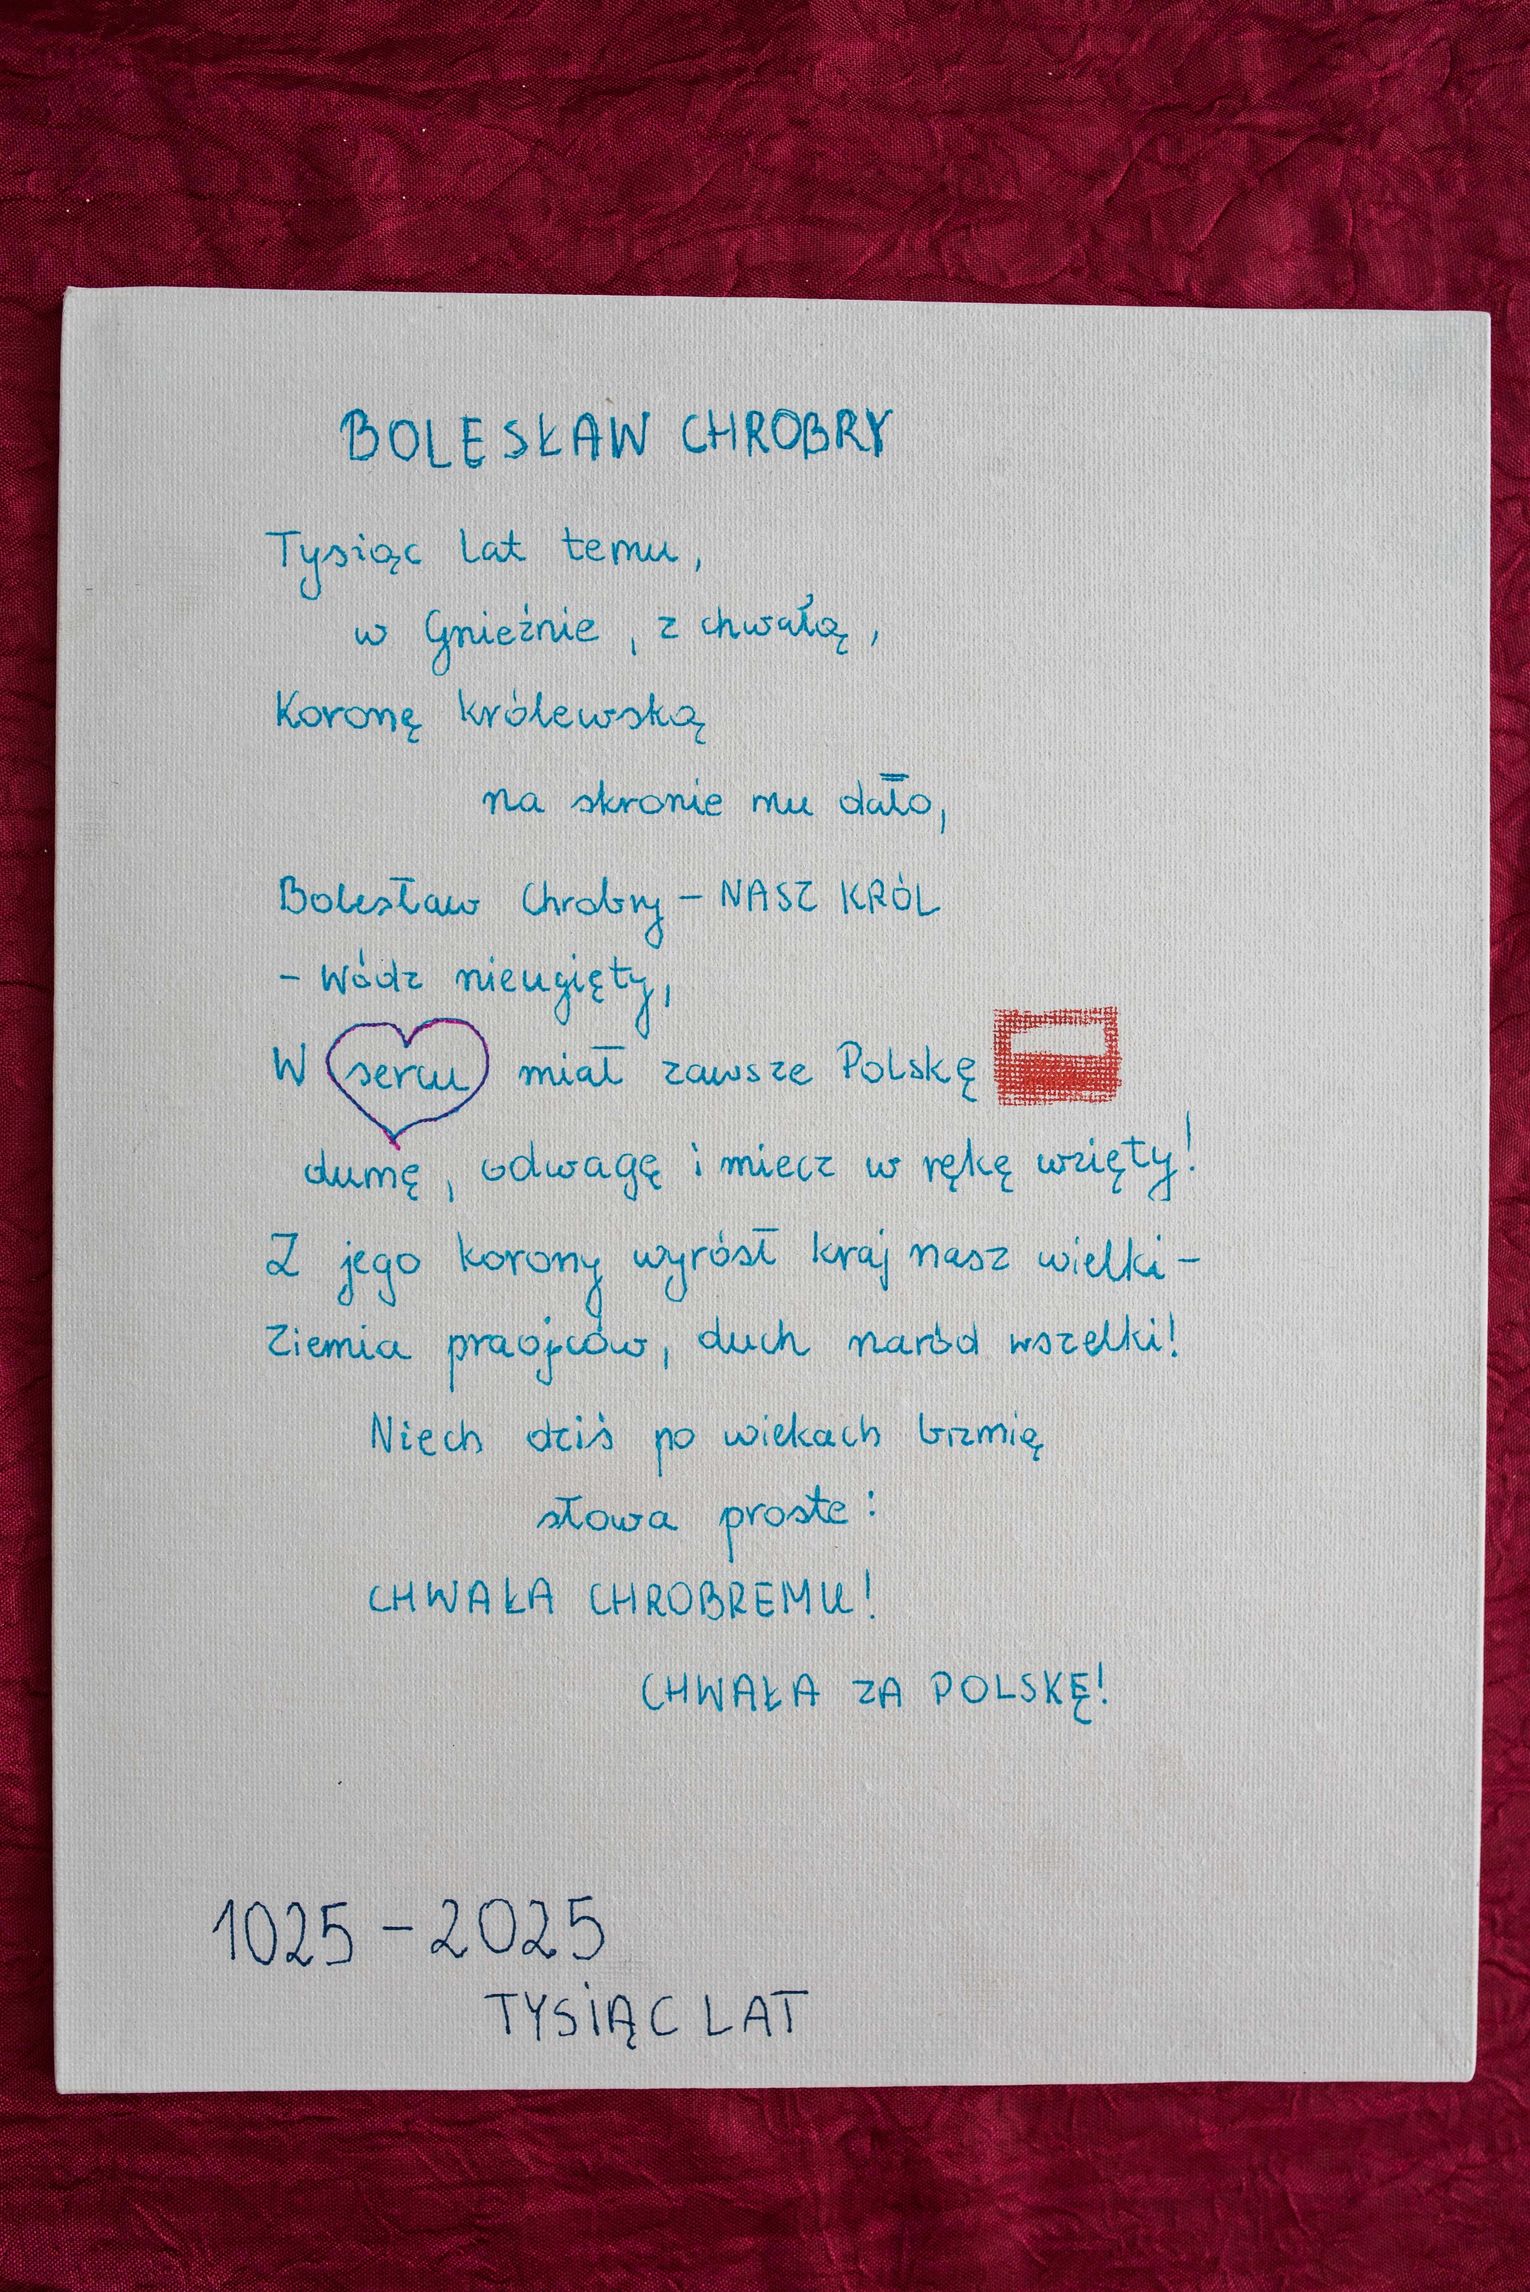 BOLESŁAW CHROBRY
Tysiąc lat temu,
w Gnieźnie, z chwałą,
Koronę królewską
na skronie mu dało,
Bolesław Chrobry - NASZ KRÓL
- Wódz nieugięty,
W sercu miał zawsze Polskę
dumę, odwagę i miecz w rękę wzięty!
Z jego korony wyrósł kraj nasz wielki -
Ziemia praojców, duch naród wszelki!
Niech dziś po wiekach brzmią
słowa proste:
CHWAŁA CHROBREMU!
CHWAŁA ZA POLSKĘ!
1025 - 2025
TYSIĄC LAT